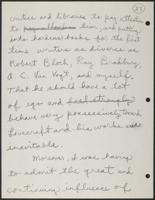 critics and libraries to pay attention
to him, and putting
into hardcover books for the first
time writers as diverse as
Robert Bloch, Ray Bradbury,
A. E. Van Vogt, and myself,
That he should have a lot
of ego and
behave very possessively toward
Lovecraft and his works was
inevitable.
Moreover, I was having
to admit the great and
continuing influences of